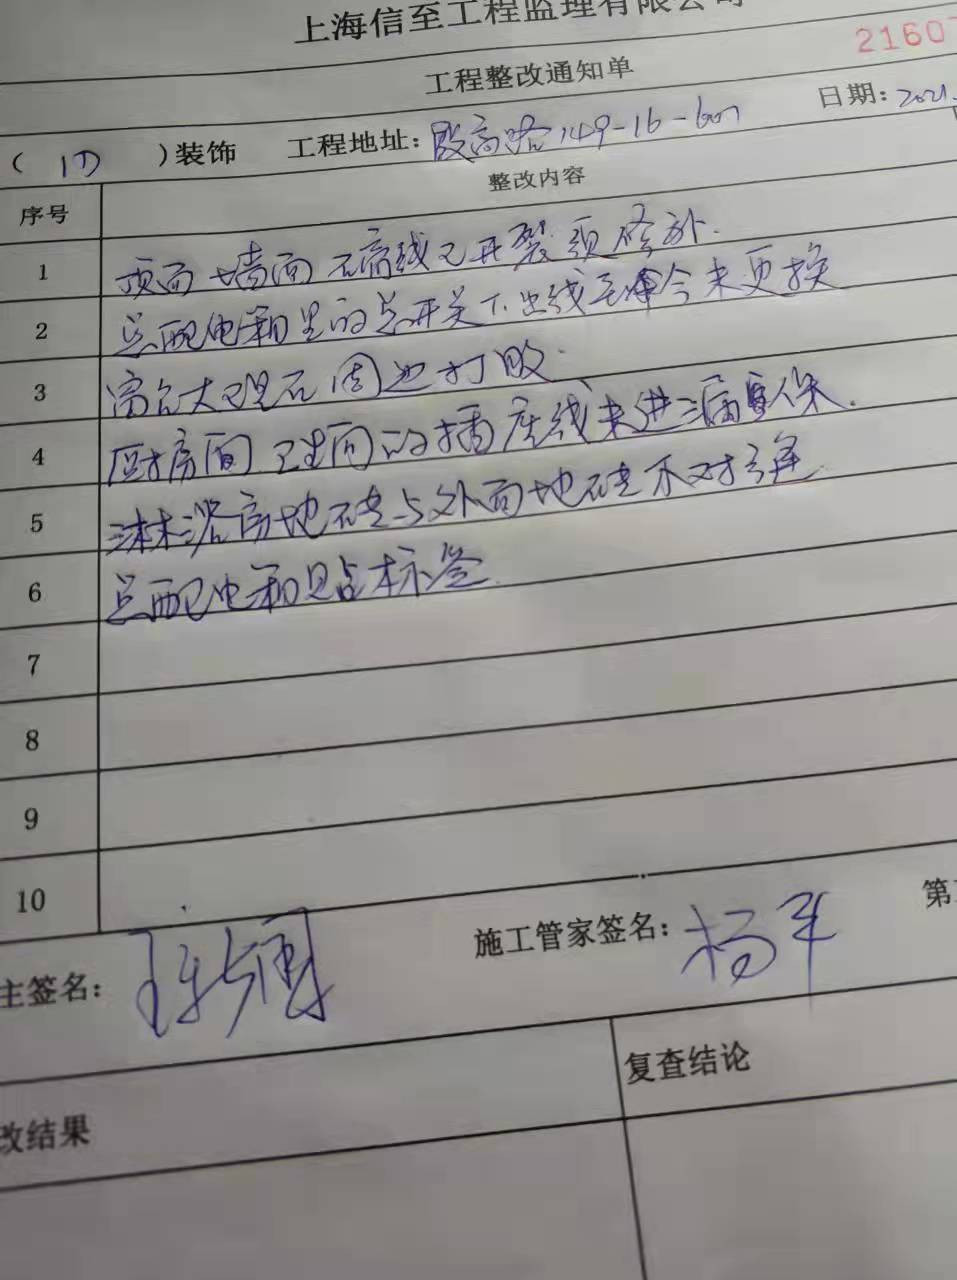 上海信至工程监理有限公司
21607
工程整改通知单
( )装饰 工程地址: 殷高路149-16-601 日期: 2021.
序号 整改内容
1 顶面墙面石膏线已开裂须修补.
2 总配电箱里的总开关下出线至今未更换
3 窗台大理石周边打胶.
4 厨房间卫生间的插座线未进漏保.
5 淋浴房地砖与外面地砖不对缝
6 总配电箱贴标签.
7
8
9
10
主签名: 施工管家签名: 杨平 第
改结果 复查结论